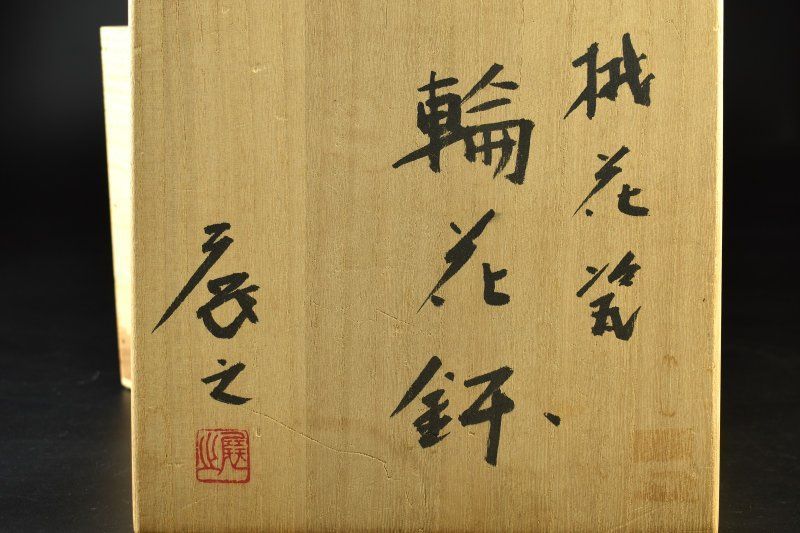 桃花瓷
輪花鉢、
展之